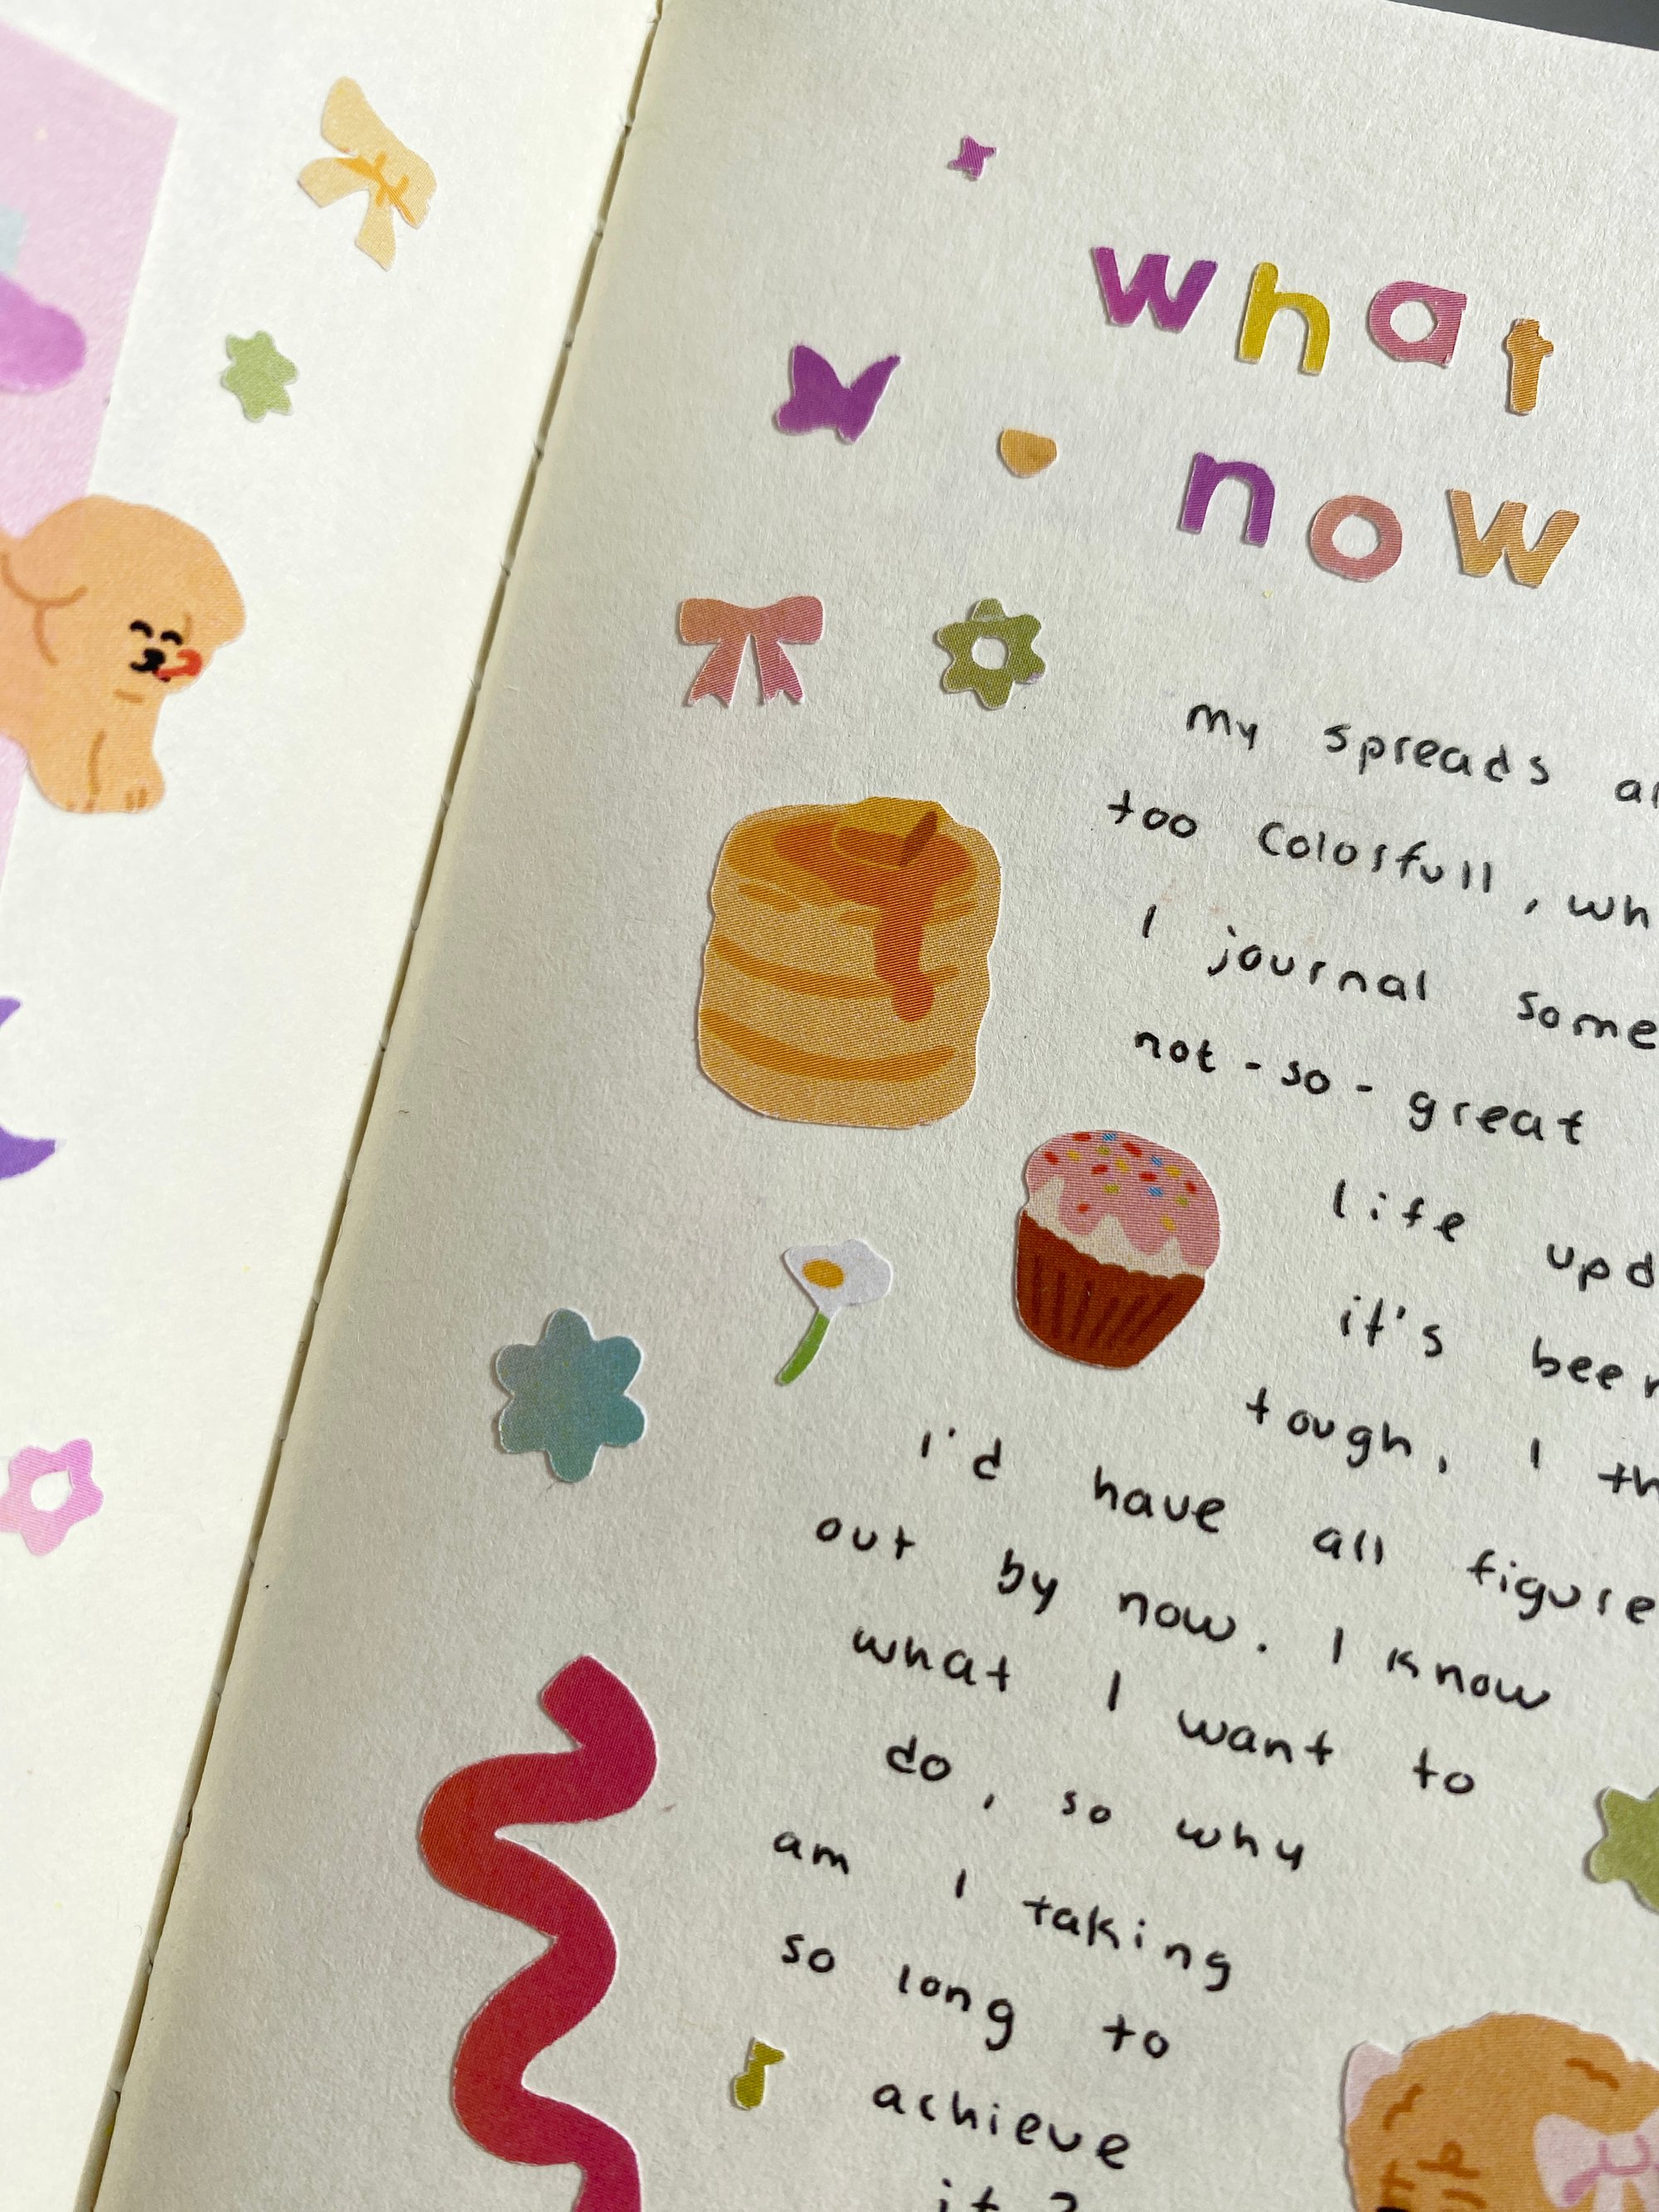 what
now
my spreads
too Colorfull,
I journal some
not-so-great
life
it's
tough, I
I'd have all figure
out by now. I know
what I want to
do, so why
am I taking
so long to
achieve
it?